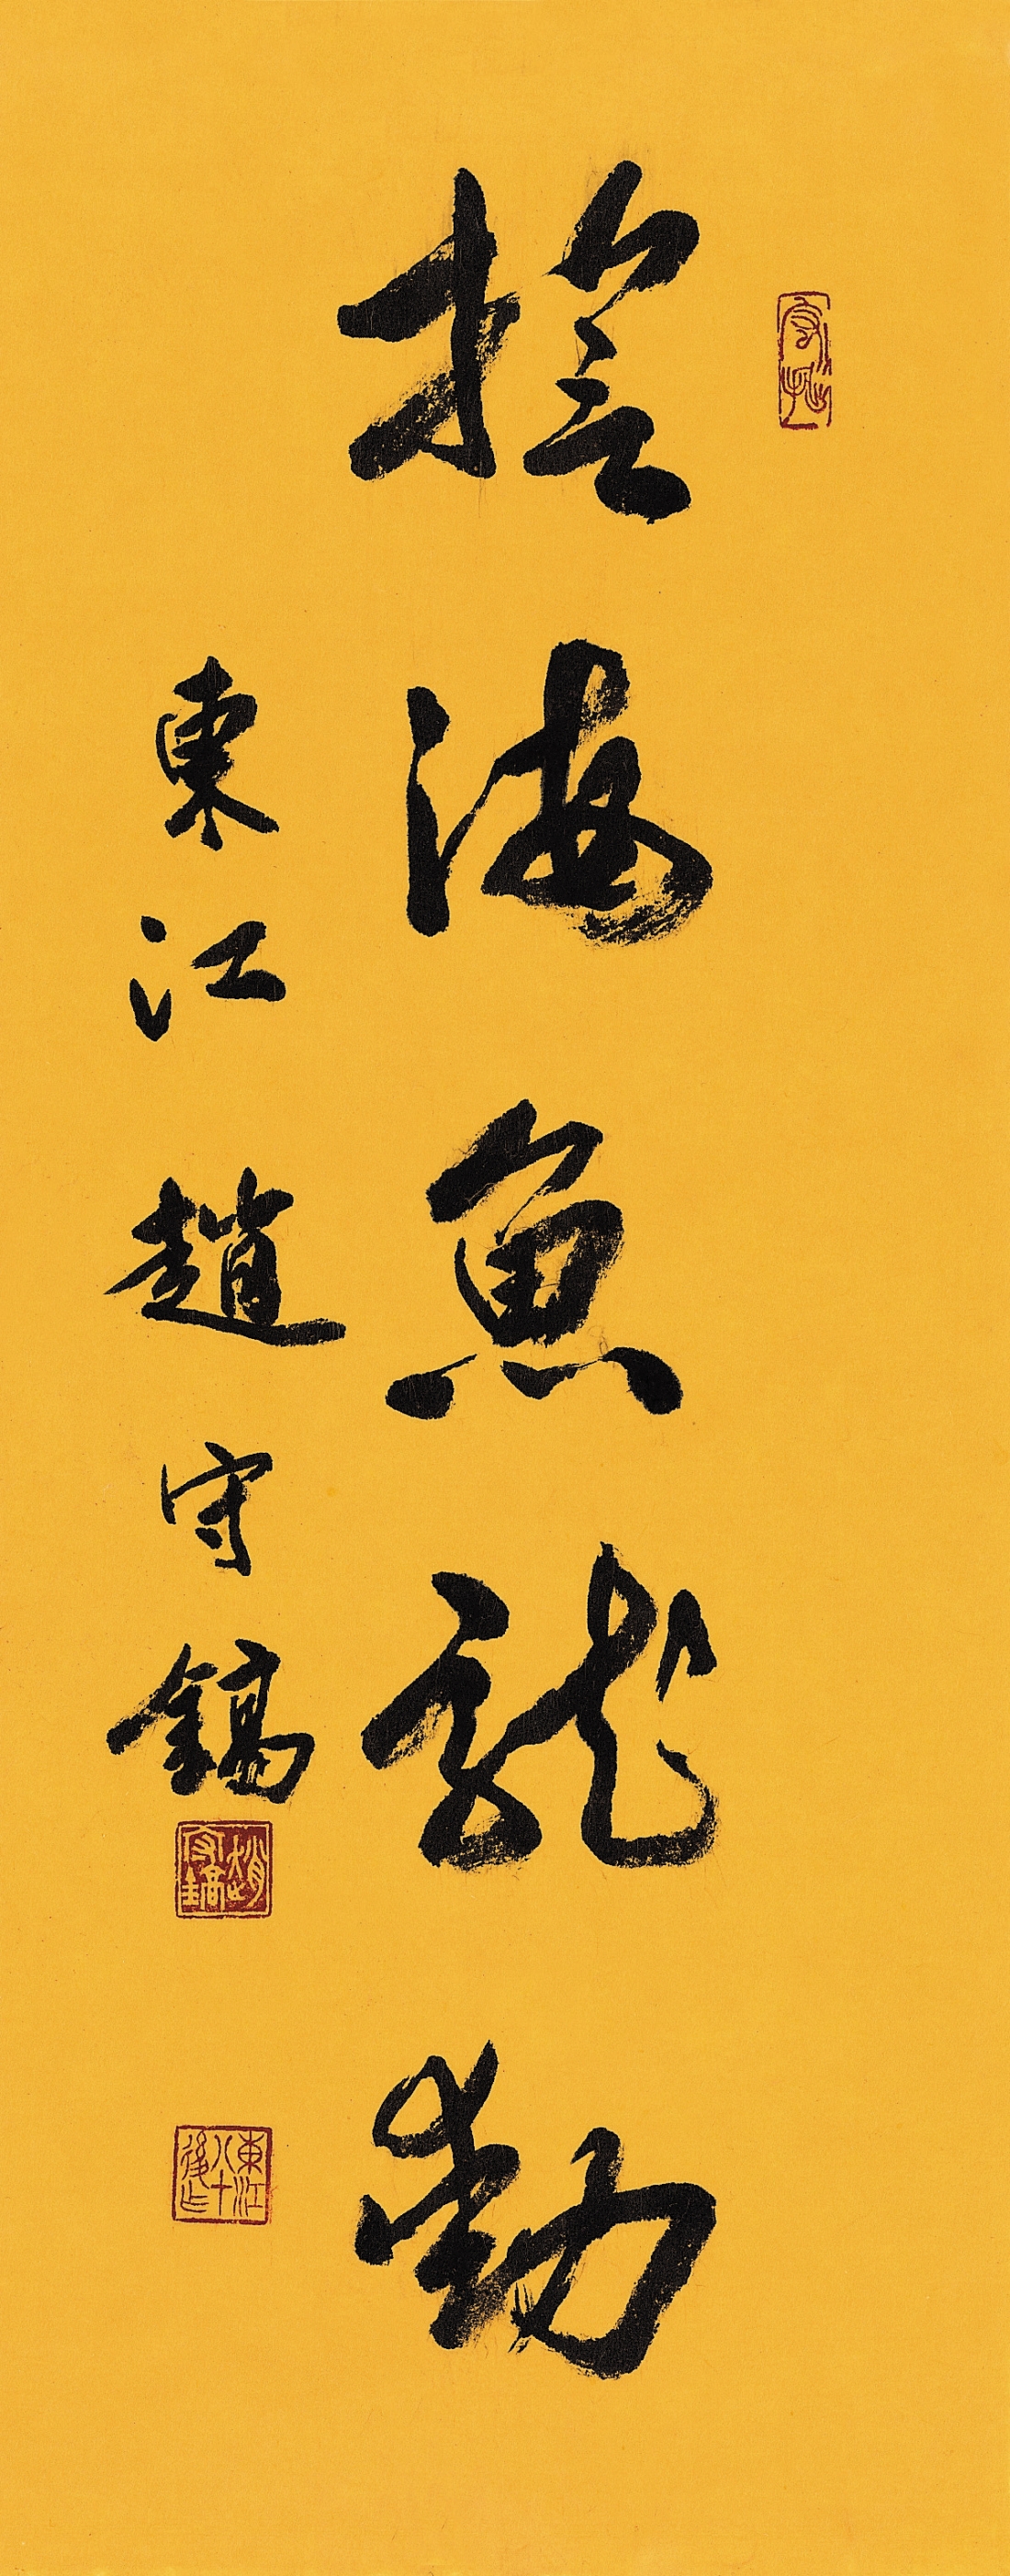 守拙
誓海魚龍動
東江趙守鎬
趙守鎬
東江八十後作